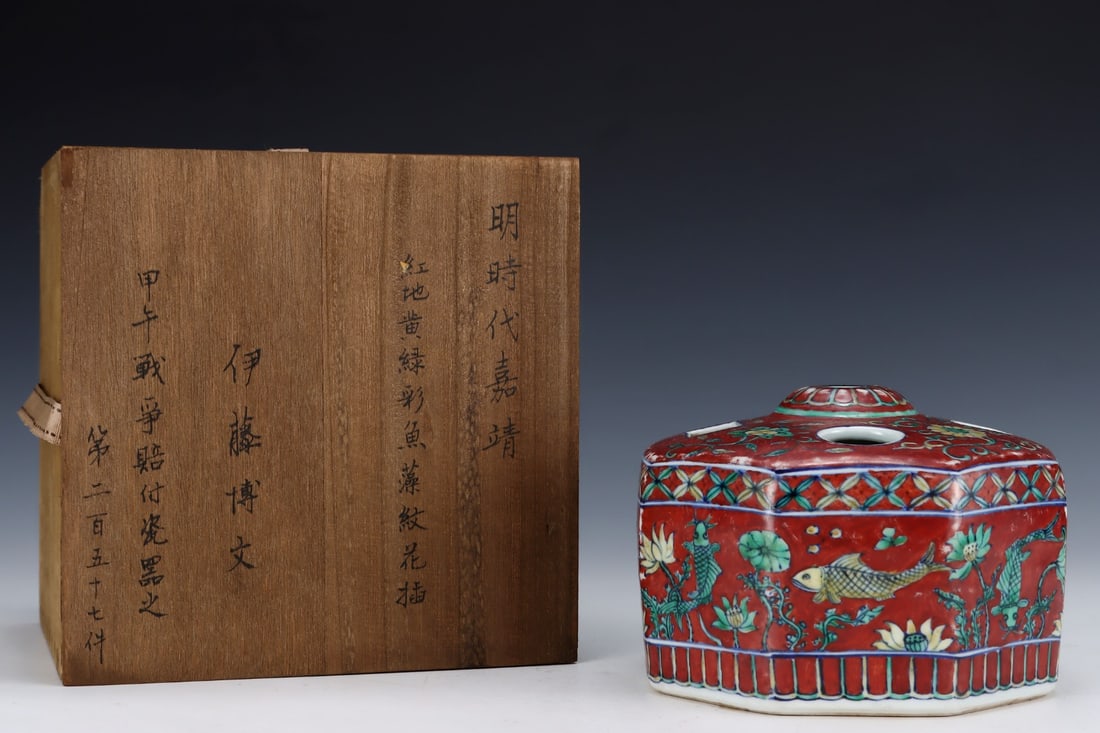 明時代嘉靖
紅地黄緑彩魚藻紋花插
伊藤博文
甲午戰爭賠付瓷器之
第二百五十七件